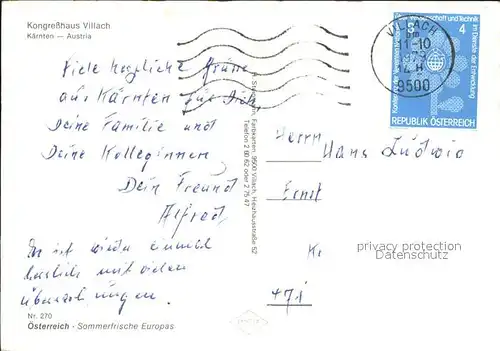 Kongreßhaus Villach
Kärnten — Austria
Viele herzliche Grüße
aus Kärnten für Dich,
Deine Familie und
Deine Kolleginnen
Dein Freund
Alfred
Es ist wieder einmal
herrlich mit vielen
Überraschungen.
Nr. 270
Österreich - Sommerfrische Europas
Farbkarten, 9500 Villach, Heizhausstraße 52
Telefon 2 60 62 oder 2 75 47
VILLACH
1-10
9500
4
Wissenschaft und Technik im Dienste der Entwicklung
Konferenz der Vereinten Nationen
REPUBLIK ÖSTERREICH
Herrn
Hans Ludwig
Ernst
privacy protection